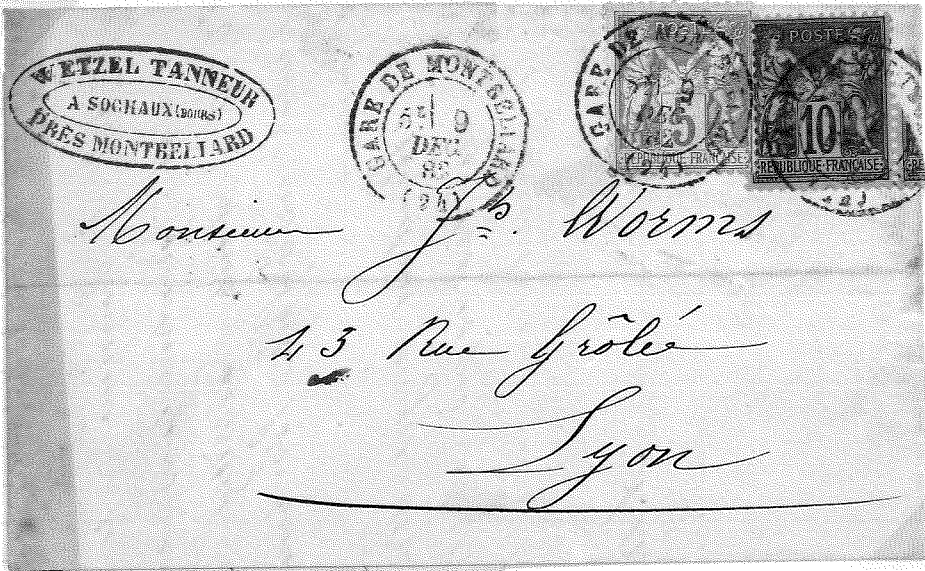 WETZEL TANNEUR
A SOCHAUX (DOUBS)
PRÈS MONTBELIARD
GARE DE MONTBELIARD
9
DEC
(24)
GARE DE
9
DEC
POSTES
5
REPUBLIQUE FRANÇAISE
POSTES
10
REPUBLIQUE FRANÇAISE
Monsieur Jh. Worms
43 Rue Grôlée
Lyon